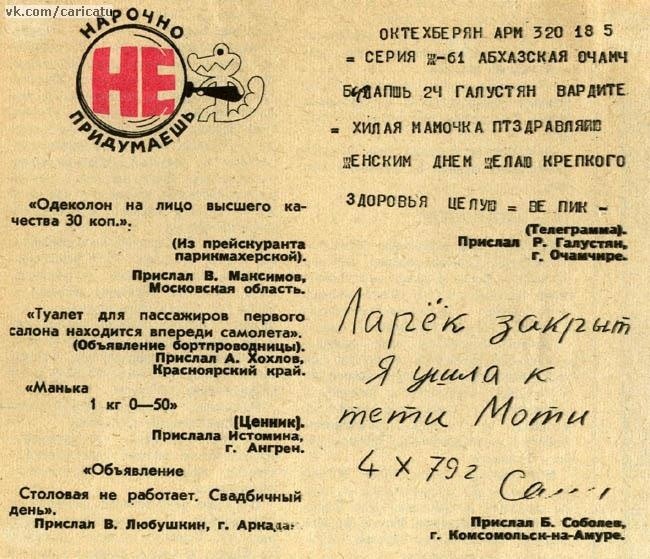 vk.com/caricatu
НАРОЧНО
НЕ
ПРИДУМАЕШЬ
«Одеколон на лицо высшего ка-
чества 30 коп.».
(Из прейскуранта
парикмахерской).
Прислал В. Максимов,
Московская область.
«Туалет для пассажиров первого
салона находится впереди самолета».
(Объявление бортпроводницы).
Прислал А. Хохлов,
Красноярский край.
«Манька
1 кг 0—50»
(Ценник).
Прислала Истомина,
г. Ангрен.
«Объявление
Столовая не работает. Свадбичный
день».
Прислал В. Любушкин, г. Аркадак.
ОКТЕХБЕРЯН АРМ 320 18 5
= СЕРИЯ Ж-61 АБХАЗСКАЯ ОЧАМЧ
2Ч ГАЛУСТЯН ВАРДИТЕ
= ХИЛАЯ МАМОЧКА ПТЗДРАВЛЯЮ
ЖЕНСКИМ ДНЕМ ЖЕЛАЮ КРЕПКОГО
ЗДОРОВЬЯ ЦЕЛУЮ = ВЕ ПИК -
(Телеграмма).
Прислал Р. Галустян,
г. Очамчире.
Ларёк закрыт
Я ушла к
тети Моти
4 X 79г
Прислал Б. Соболев,
г. Комсомольск-на-Амуре.